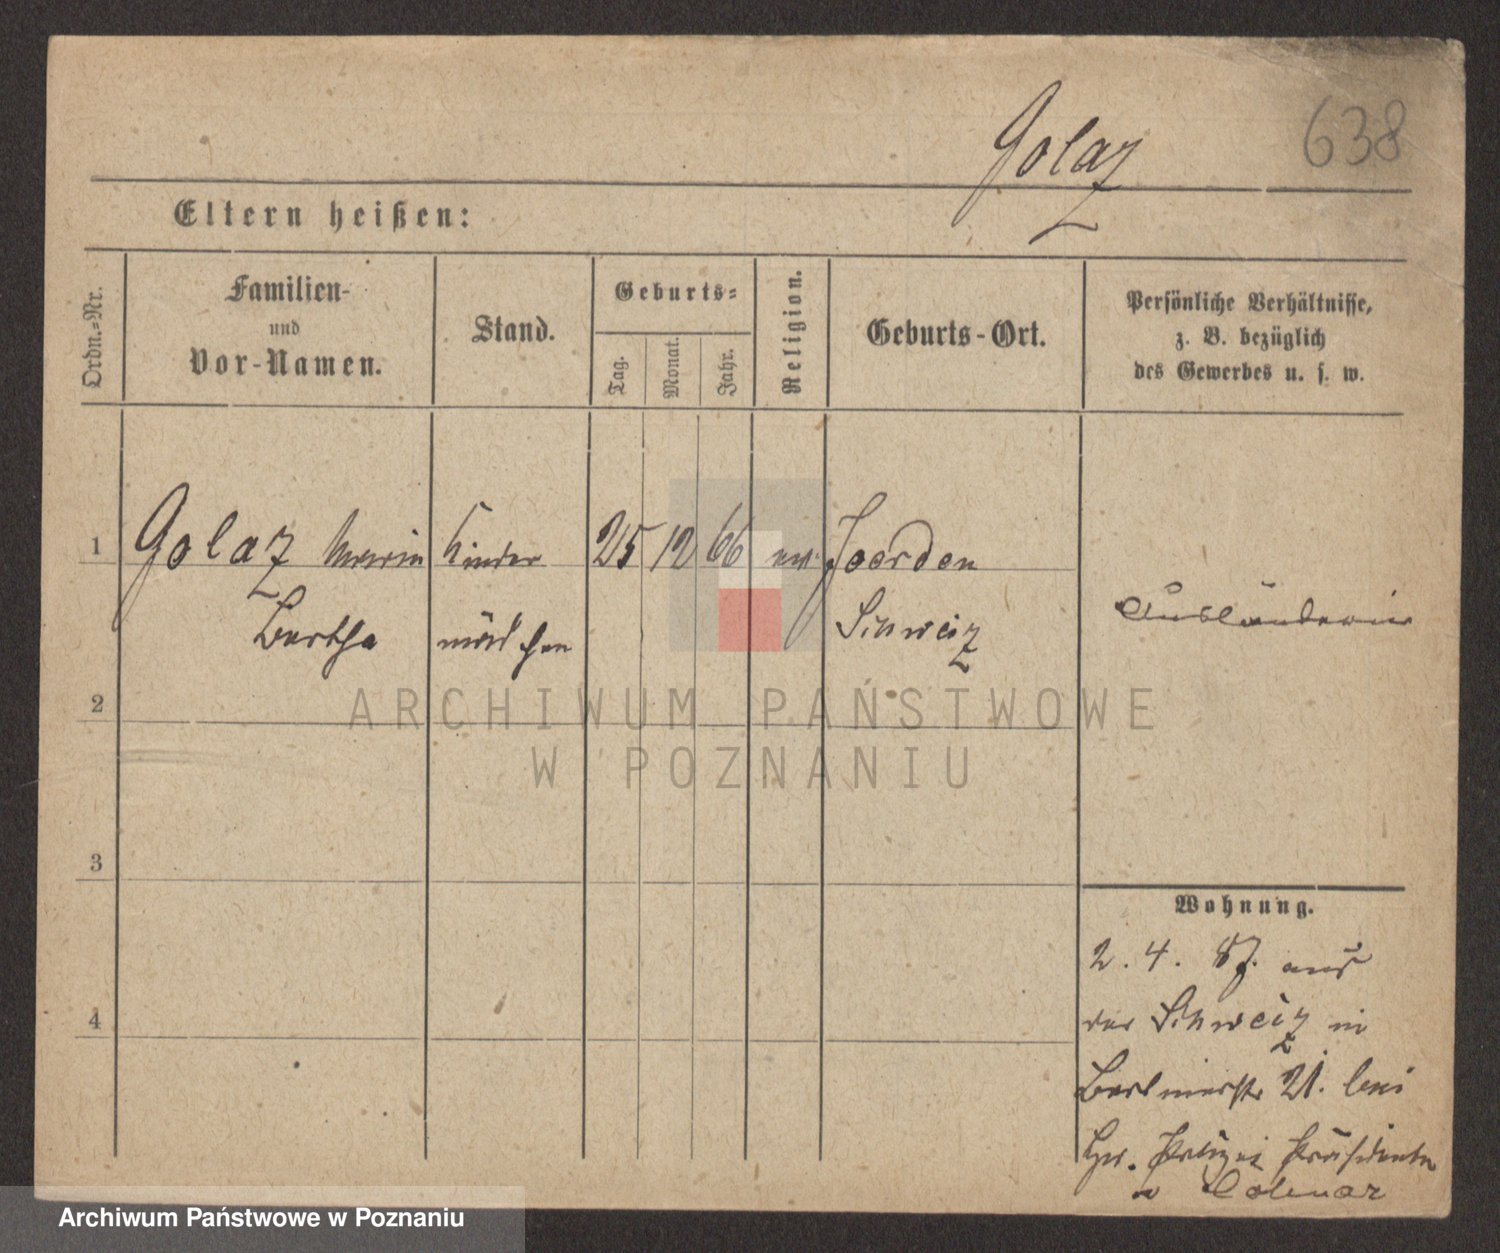 Golaz
638
Eltern heißen:
Ordn.-Nr.
Familien-
und
Vor-Namen.
Stand.
Geburts-
Tag.
Monat.
Jahr.
Religion.
Geburts-Ort.
Persönliche Verhältnisse,
z. B. bezüglich
des Gewerbes u. s. w.
1 Golaz Marie Kinder 25 12 66 ev. Joerden
Bertha mädchen Schweiz
Ausländerin
2
3
4
Wohnung.
2. 4. 87. aus
der Schweiz in
Berlinerstr 21. bei
Hr. Polizei Präsidenten
v Colmar
ARCHIWUM PAŃSTWOWE
W POZNANIU
Archiwum Państwowe w Poznaniu